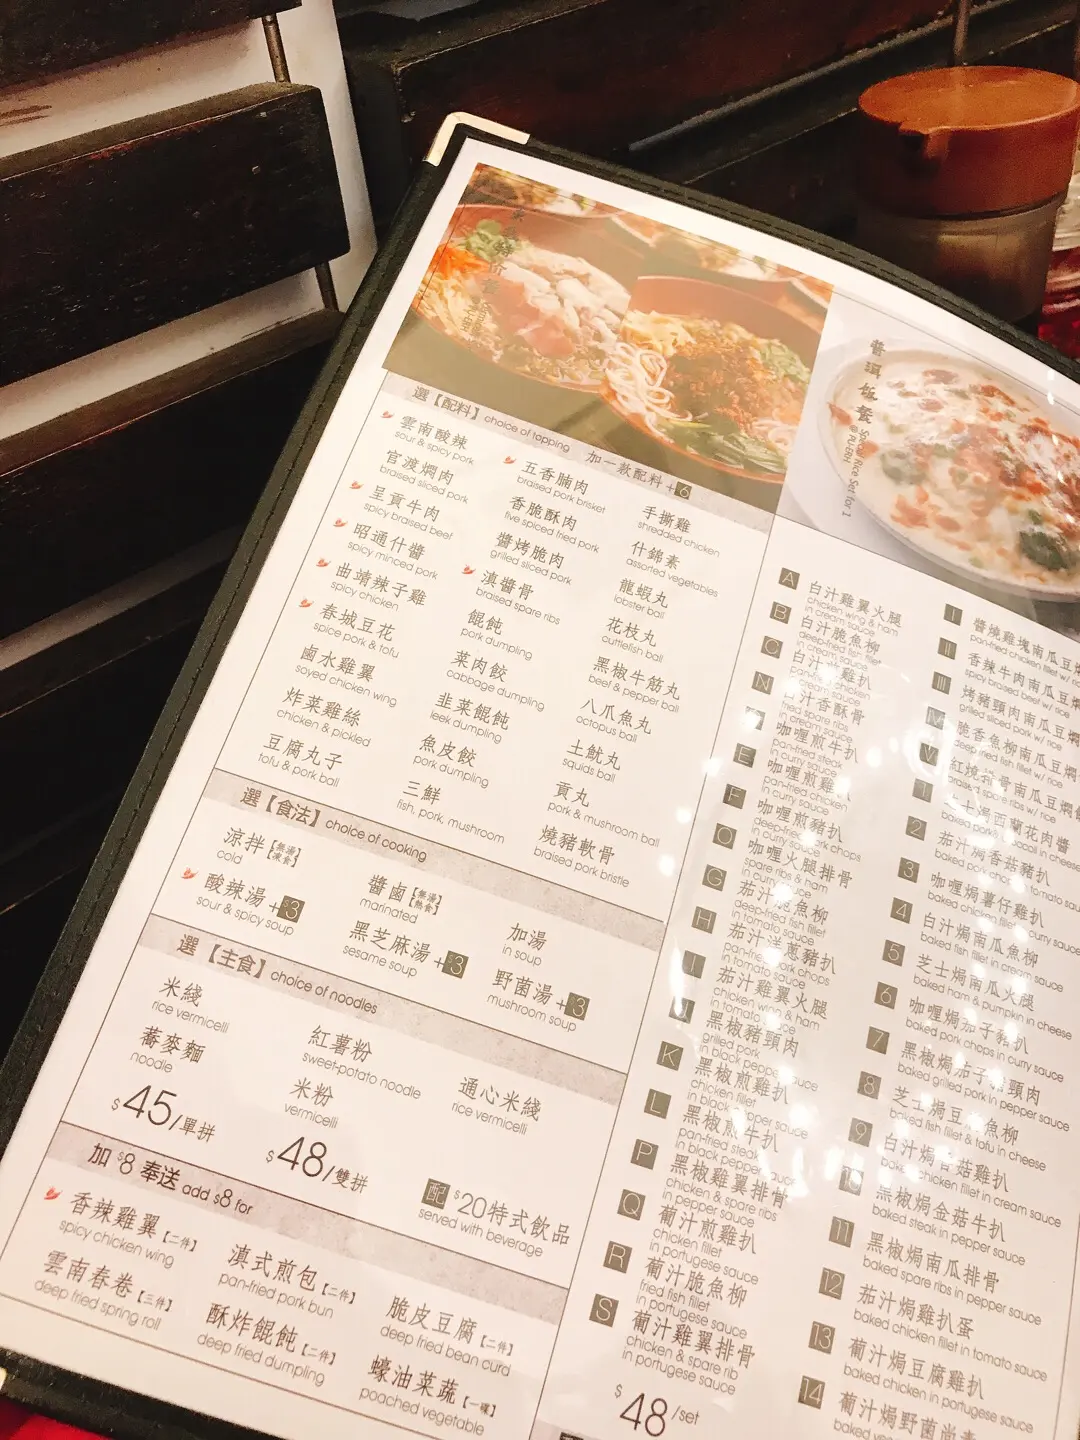 選【配料】choice of topping 加一款配料+$6
雲南酸辣
sour & spicy pork
官渡燜肉
braised sliced pork
呈貢牛肉
spicy braised beef
昭通什醬
spicy minced pork
曲靖辣子雞
spicy chicken
春城豆花
spice pork & tofu
鹵水雞翼
soyed chicken wing
炸菜雞絲
chicken & pickled
豆腐丸子
tofu & pork ball
五香腩肉
braised pork brisket
香脆酥肉
five spiced fried pork
醬烤脆肉
grilled sliced pork
滇醬骨
braised spare ribs
餛飩
pork dumpling
菜肉餃
cabbage dumpling
韭菜餛飩
leek dumpling
魚皮餃
pork dumpling
三鮮
fish, pork, mushroom
手撕雞
shredded chicken
什錦素
assorted vegetables
龍蝦丸
lobster ball
花枝丸
curtlefish ball
黑椒牛筋丸
beef & pepper ball
八爪魚丸
octopus ball
土魷丸
squids ball
貢丸
pork & mushroom ball
燒豬軟骨
braised pork bristle
選【食法】choice of cooking
涼拌【無湯凍食】
cold
醬鹵【無湯熱食】
marinated
加湯
in soup
酸辣湯+$3
sour & spicy soup
黑芝麻湯+$3
sesame soup
野菌湯+$3
mushroom soup
選【主食】choice of noodles
米綫
rice vermicelli
紅薯粉
sweet-potato noodle
通心米綫
rice vermicelli
蕎麥麵
noodle
米粉
vermicelli
$45/單拼
$48/雙拼
配$20特式飲品
served with beverage
加$8奉送 add $8 for
香辣雞翼【二件】
spicy chicken wing
滇式煎包【二件】
pan-fried pork bun
脆皮豆腐【二件】
deep fried bean curd
雲南春卷【三件】
deep fried spring roll
酥炸餛飩【二件】
deep fried dumpling
蠔油菜蔬【一碟】
poached vegetable
A 白汁雞翼火腿
chicken wing & ham
in cream sauce
B 白汁脆魚柳
deep-fried fish fillet
in cream sauce
C 白汁煎雞扒
pan-fried chicken
in cream sauce
白汁香酥骨
fried spare ribs
in cream sauce
咖喱煎牛扒
pan-fried steak
in curry sauce
E 咖喱煎雞扒
pan-fried chicken
in curry sauce
F 咖喱煎豬扒
deep-fried pork chops
in curry sauce
O 咖喱火腿排骨
spare ribs & ham
in curry sauce
G 茄汁脆魚柳
deep-fried fish fillet
in tomato sauce
H 茄汁洋蔥豬扒
pan-fried pork chops
in tomato sauce
I 茄汁雞翼火腿
chicken wing & ham
in tomato sauce
J 黑椒豬頸肉
grilled pork
in black pepper sauce
K 黑椒煎雞扒
chicken fillet
in black pepper sauce
L 黑椒煎牛扒
pan-fried steak
in black pepper sauce
P 黑椒雞翼排骨
chicken & spare ribs
in pepper sauce
Q 葡汁煎雞扒
chicken fillet
in portuguese sauce
R 葡汁脆魚柳
fried fish fillet
in portuguese sauce
S 葡汁雞翼排骨
chicken & spare rib
in portuguese sauce
$48/set
I 醬燒雞塊南瓜豆
pan-fried chicken fillet w/
II 香辣牛肉南瓜豆
spicy braised beef w/ rice
III 烤豬頸肉南瓜豆
grilled sliced pork w/ rice
脆香魚柳南瓜豆燜
deep fried fish fillet w/ rice
V 紅燒排骨南瓜豆燜
braised spare ribs w/ rice
芝士焗西蘭花肉醬
2 茄汁焗香菇豬扒
3 咖喱焗薯仔雞扒
baked chicken fillet in curry sauce
4 白汁焗南瓜魚柳
baked fish fillet in cream sauce
5 芝士焗南瓜火腿
baked ham & pumpkin in cheese
6 咖喱焗茄子豬扒
baked pork chops in curry sauce
7 黑椒焗茄子豬頸肉
baked grilled pork in pepper sauce
8 芝士焗豆腐魚柳
baked fish fillet & tofu in cheese
9 白汁焗香菇雞扒
baked chicken fillet in cream sauce
10 黑椒焗金菇牛扒
baked steak in pepper sauce
11 黑椒焗南瓜排骨
baked spare ribs in pepper sauce
12 茄汁焗雞扒蛋
baked chicken fillet in tomato sauce
13 葡汁焗豆腐雞扒
baked chicken in portuguese sauce
14 葡汁焗野菌尚素